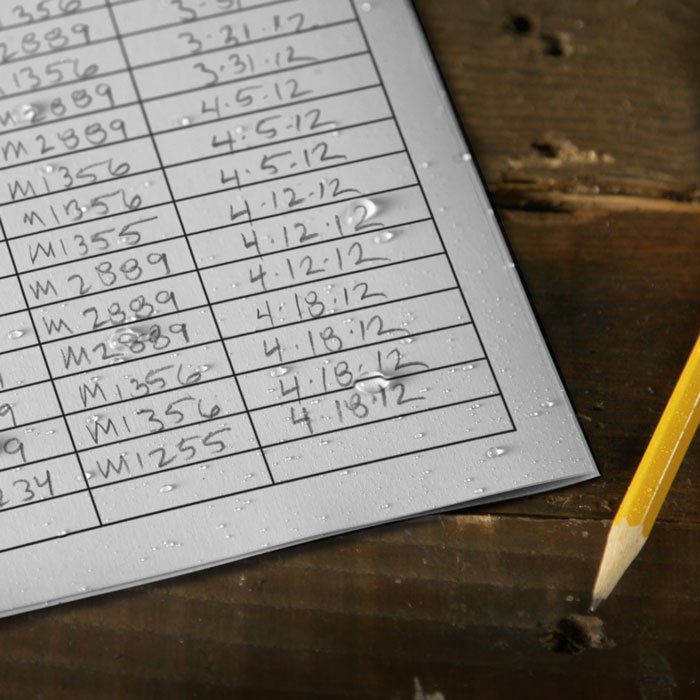 1356
2889 3·31
1356 3·31·12
M2889 3·31·12
M2889 4·5·12
M1356 4·5·12
M1356 4·5·12
M1355 4·12·12
M2889 4·12·12
M2889 4·12·12
M2889 4·18·12
9 M1356 4·18·12
9 M1356 4·18·12
234 M1255 4·18·12